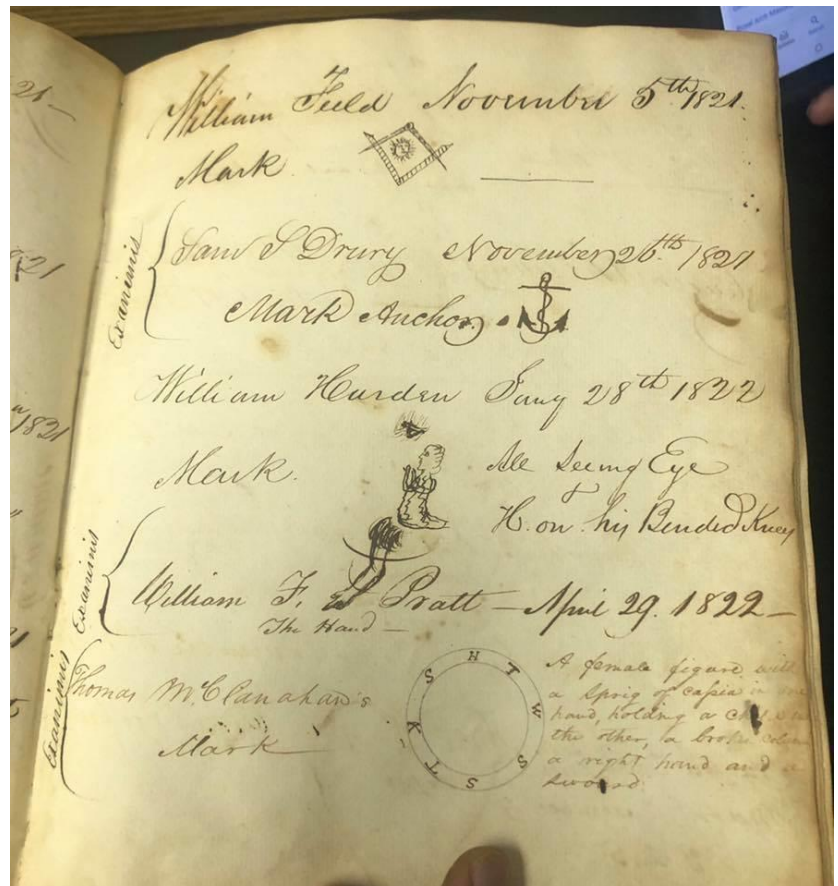 William Field November 5th 1821.
Mark
Examinis
Saml S Drury November 26th 1821
Mark Anchor.
William Harden Jany 28th 1822
Mark.
All Seeing Eye
&
H. on his Bended Knees
Examinis
William F. Pratt — April 29. 1822 —
The Hand —
Examinis
Thomas McClanahan's
Mark
H T W S S T K S
A female figure with
a Sprig of cassia in one
hand, holding a
the other, a broken column
a right hand and a
sword
21.—
1821